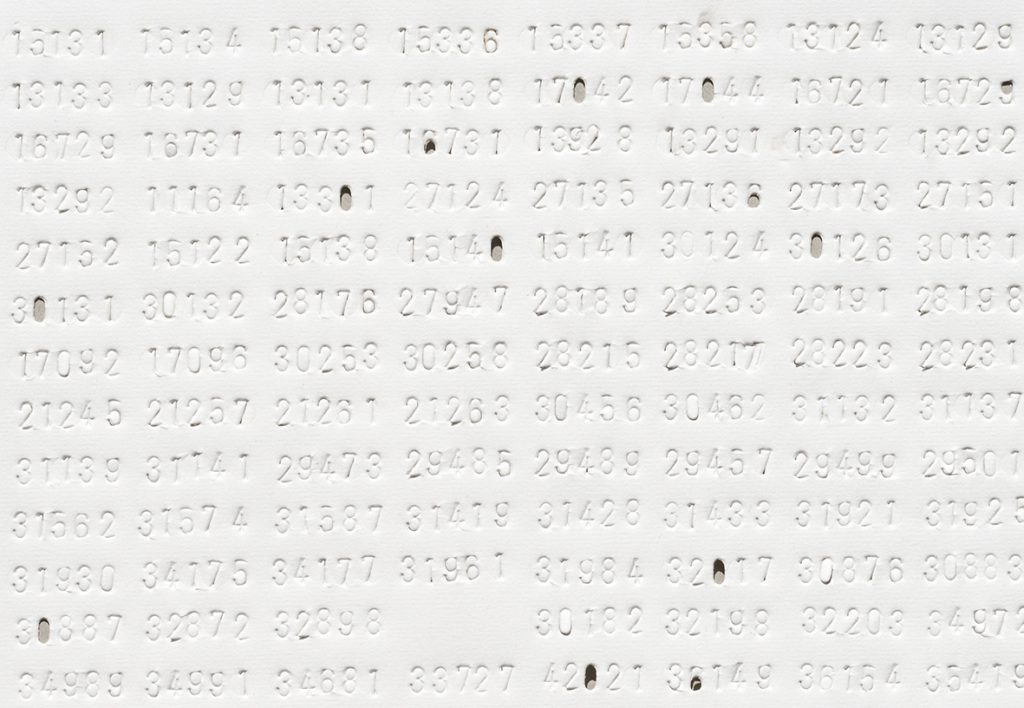 15131 15134 15138 15336 15337 15358 13124 13129
13133 13129 13131 13138 17042 17044 16721 16729
16729 16731 16735 16731 13928 13291 13292 13292
13292 11164 13301 27124 27135 27136 27173 27151
27152 15122 15138 15140 15141 30124 30126 30131
30131 30132 28176 27947 28189 28253 28191 28198
17092 17096 30253 30258 28215 28217 28223 28231
21245 21257 21261 21263 30456 30462 31132 31137
31139 31141 29473 29485 29489 29457 29499 29501
31562 31574 31587 31419 31428 31433 31921 31925
31930 34175 34177 31961 31984 32017 30876 30883
30887 32872 32898 30182 32198 32203 34972
34989 34991 34681 33727 42021 36149 36154 35419